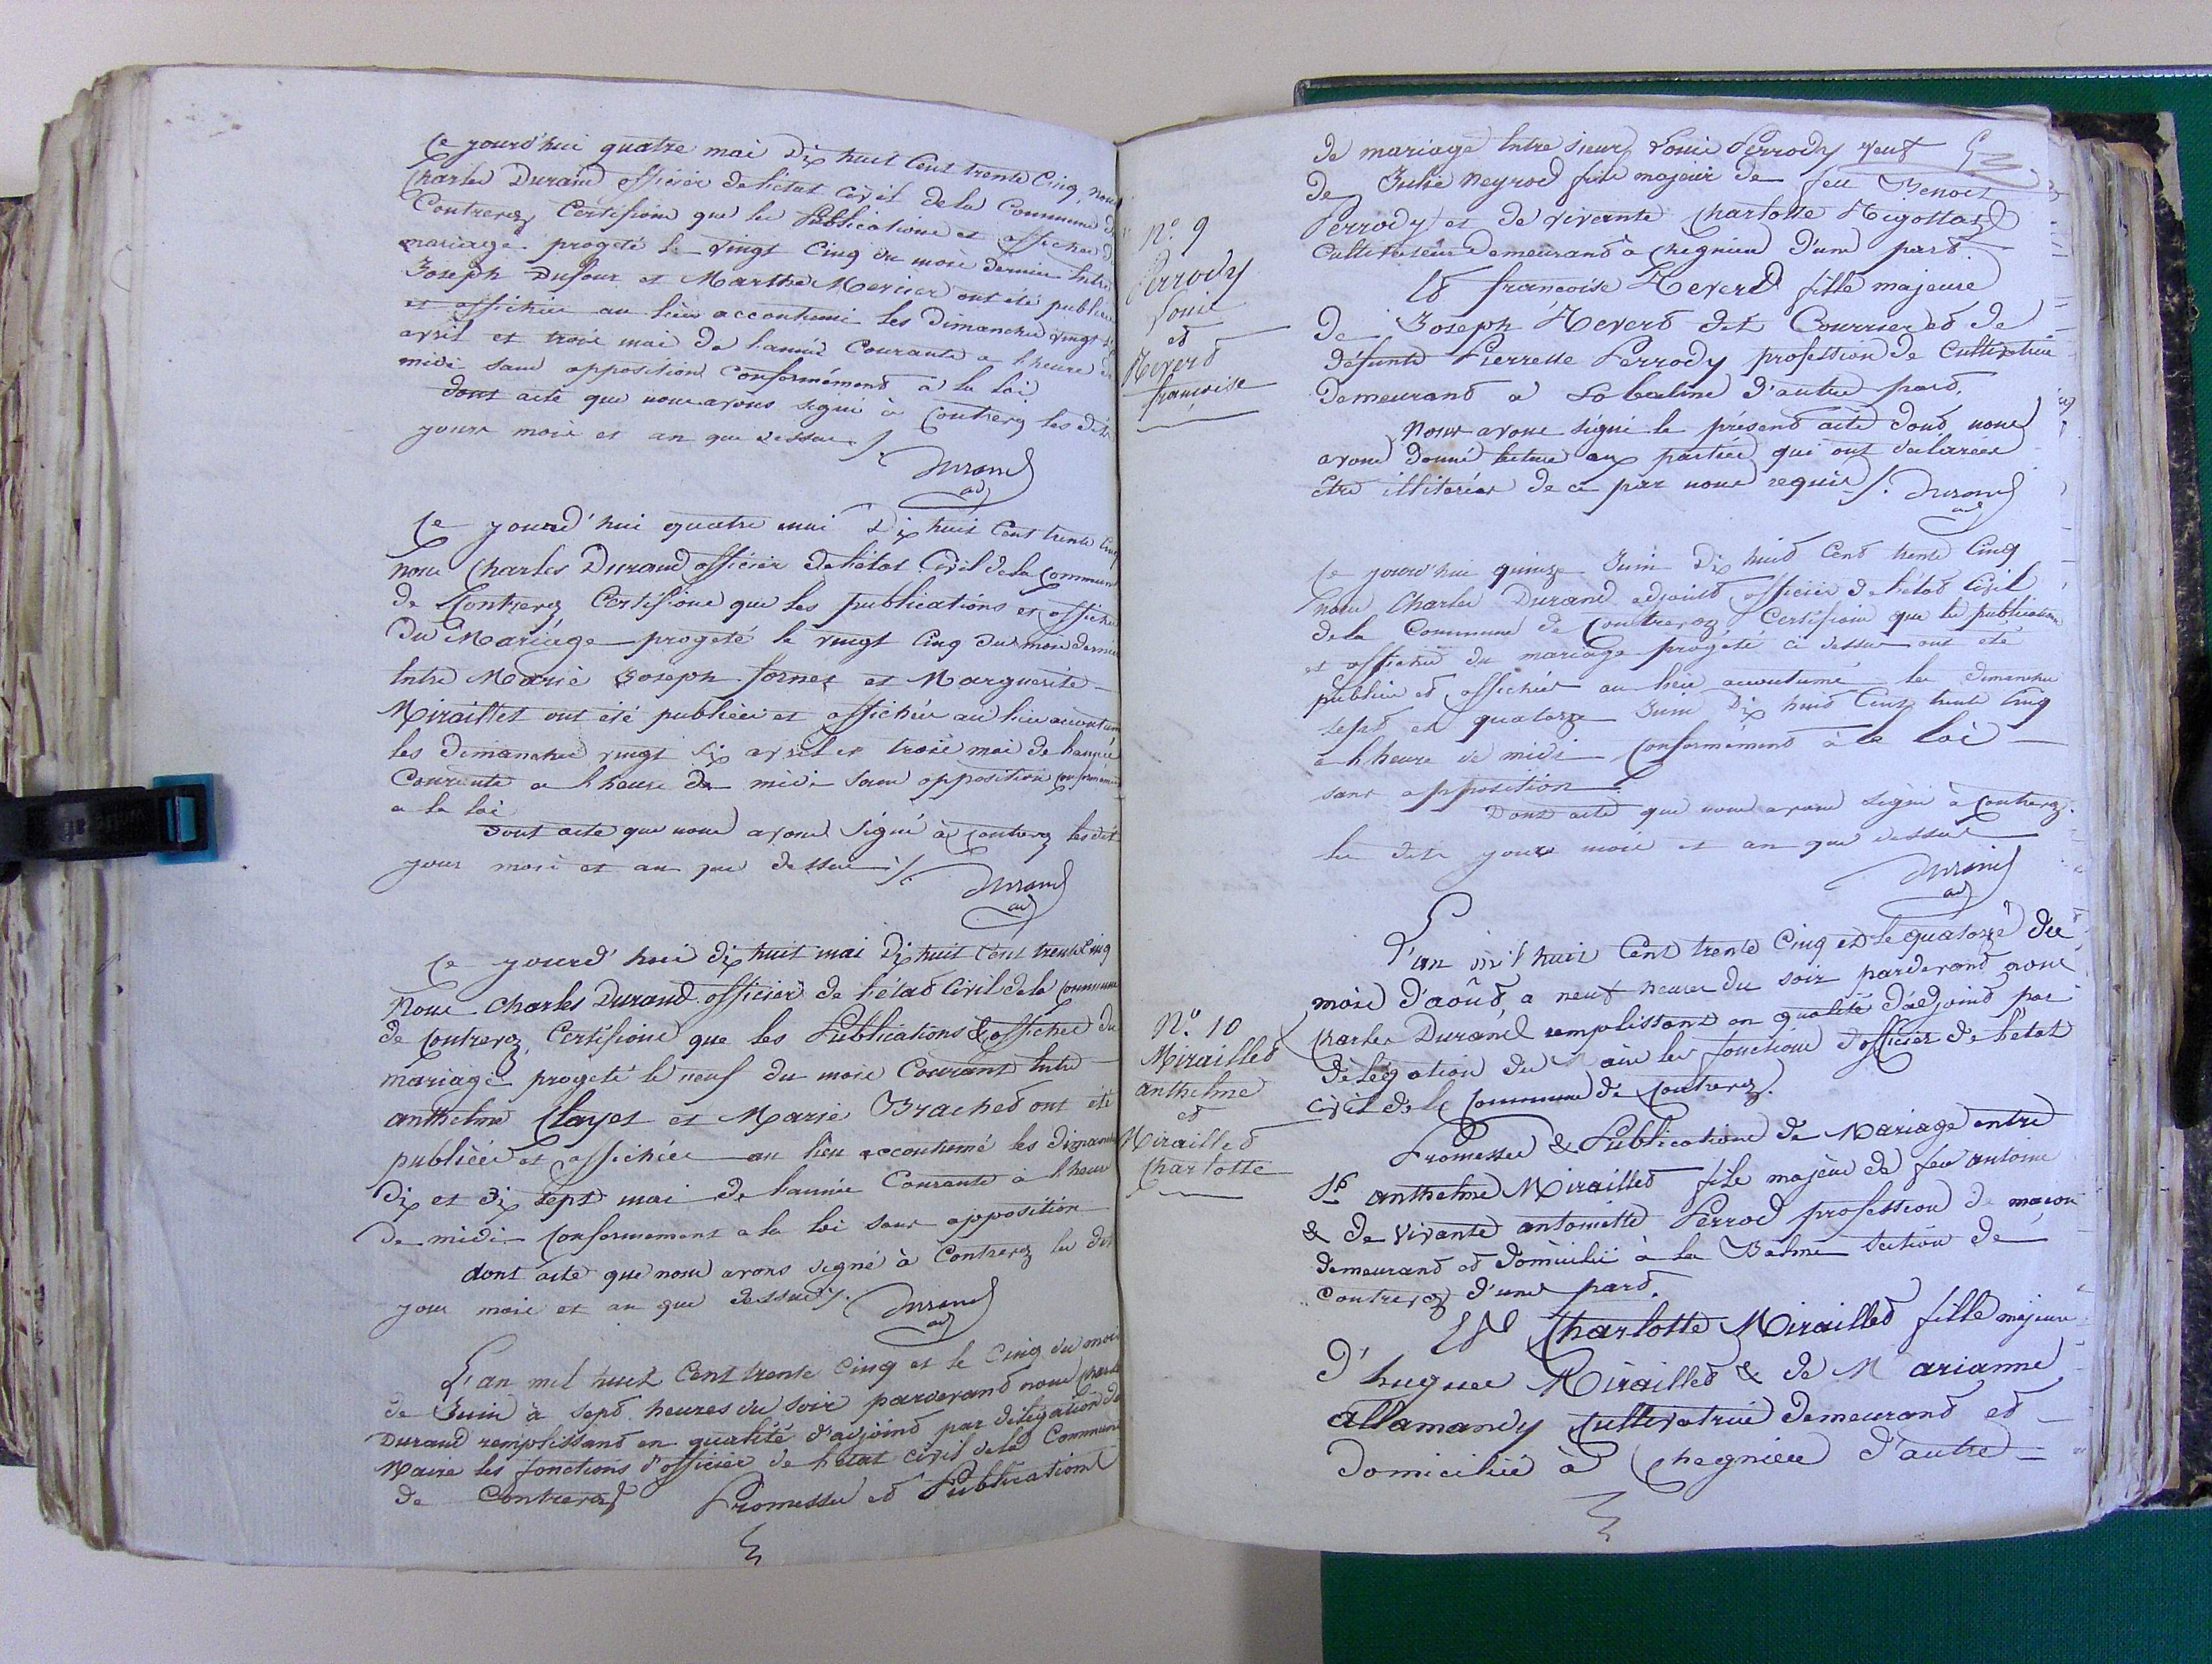 Ce jourd'hui quatre mai Dix huit Cent trente Cinq, nous
Charles Durand officier de l'état civil de la Commune de
Contrevoz Certifions que les Publications et affiches du
mariage progeté le vingt Cinq du mois dernier Entre
Joseph Dufour et Marthe Mercier ont été publiées
et affichées au lieu accoutumé les Dimanches vingt six
avril et trois mai de l'année Courante a l'heure de
midi sans opposition Conformément a la loi
dont acte que nous avons signé à Contrevoz les dits
jour mois et an que dessus ./.
Durand
adj
Ce jourd'hui quatre mai Dix huit Cent trente Cinq
nous Charles Durand officier de l'état Civil de la Commune
de Contrevoz Certifions que les publications et affiches
Du Mariage progeté le vingt Cinq du mois dernier
Entre Marie Joseph fornet et Marguerite
Miraillet ont été publiées et affichées au lieu accoutumé
les dimanches vingt six avril et trois mai de l'année
Courante a l'heure de midi sans opposition conformément
a la loi
Dont acte que nous avons signé à Contrevoz les dits
jour mois et an que dessus ./.
Durand
adj
Ce jourd'hui dix huit mai Dix huit Cent trente Cinq
Nous Charles Durand officier de l'état Civil de la Commune
de Contrevoz Certifions que les Publications & affiches du
mariage progeté le neuf du mois Courant Entre
anthelme Clayet et Marie Brachet ont été
publiées et affichées au lieu accoutumé les dimanches
Dix et Dix sept mai de l'année Courante à l'heure
de midi Conformement a la loi sans opposition
dont acte que nous avons signé à Contrevoz les dits
jour mois et an que dessus ./.
Durand
adj
L'an mil huit Cent trente Cinq et le Cinq du mois
de Juin à sept heures du soir pardevant nous Charles
Durand remplissant en qualité d'adjoint par délégation du
Maire les fonctions d'officier de l'état civil de la Commune
de Contrevoz Promesses et Publications
de mariage Entre sieur Louis Perrody veuf
de Julie Neyrod fils majeur de feu Benoit
Perrody et de vivante Charlotte Rigottaz
Cultivateur Demeurant à Chegnieu d'une part.
Et francoise Revert fille majeure
De Joseph Revert dit Courrier et de
défunte Pierrette Perrody profession de Cultivatrice
Demeurant a La balme d'autre part.
Nous avons signé le présent acte dont nous
avons donné lecture aux parties qui ont déclarées
être illitérées de ce par nous requis ./. Durand
adj
N.o 9
Perrody
Louis
et
Revert
francoise
Ce jourd'hui quinze Juin Dix huit Cent trente Cinq
nous Charles Durand adjoint officier de l'état Civil
de la Commune de Contrevoz Certifions que les publications
et affiches du mariage progété ci dessus ont été
publiées et affichées au lieu accoutumé les dimanches
sept et quatorze Juin Dix huit Cent trente Cinq
a l'heure de midi Conformément à la loi
sans opposition
Dont acte que nous avons signé à Contrevoz
les dits jour mois et an que dessus
Durand
adj
L'an mil huit Cent trente Cinq et le quatorze du
mois d'août a neuf heures du soir pardevant nous
Charles Durand remplissant en qualité d'adjoint par
délégation du Maire les fonctions d'officier de l'état
civil de la Commune de Contrevoz.
Promesses & Publications de Mariage entre
Sr anthelme Miraillet fils majeur de feu antoine
& de vivante antoinette Perrod profession de macon
demeurant et domicilié à la Balme section de
Contrevoz d'une part.
Et Charlotte Miraillet fille majeure
D'hugues Miraillet & de Marianne
allamandy Cultivatrice demeurant et
Domiciliée à Chegnieu d'autre
N.o 10
Miraillet
anthelme
et
Miraillet
Charlotte